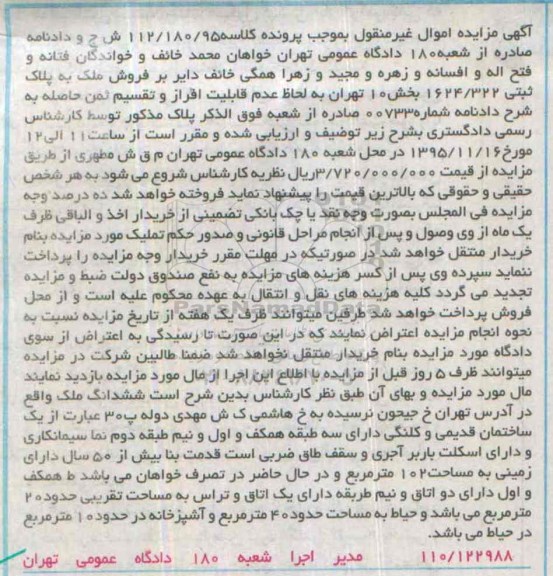 آگهی مزایده اموال غیرمنقول بموجب پرونده کلاسه۱۱۲/۱۸۰/۹۵ ش ح و دادنامه
صادره از شعبه۱۸۰ دادگاه عمومی تهران خواهان محمد خائف و خواندگان فتانه و
فتح اله و افسانه و زهره و مجید و زهرا همگی خائف دایر بر فروش ملک به پلاک
ثبتی ۱۶۲۴/۳۲۲ بخش۱۰ تهران به لحاظ عدم قابلیت افراز و تقسیم ثمن حاصله به
شرح دادنامه شماره۰۰۷۳۳ صادره از شعبه فوق الذکر پلاک مذکور توسط کارشناس
رسمی دادگستری بشرح زیر توضیف و ارزیابی شده و مقرر است از ساعت۱۱ الی۱۲
مورخ۱۳۹۵/۱۱/۱۶ در محل شعبه ۱۸۰ دادگاه عمومی تهران م ق ش مطهری از طریق
مزایده از قیمت ۳/۷۲۰/۰۰۰/۰۰۰ریال نظریه کارشناس شروع می شود به هر شخص
حقیقی و حقوقی که بالاترین قیمت را پیشنهاد نماید فروخته خواهد شد ده درصد وجه
مزایده فی المجلس بصورت وجه نقد یا چک بانکی تضمینی از خریدار اخذ و الباقی ظرف
یک ماه از وی وصول و پس از انجام مراحل قانونی و صدور حکم تملیک مورد مزایده بنام
خریدار منتقل خواهد شد در صورتیکه در مهلت مقرر خریدار وجه مزایده را پرداخت
ننماید سپرده وی پس از کسر هزینه های مزایده به نفع صندوق دولت ضبط و مزایده
تجدید می گردد کلیه هزینه های نقل و انتقال به عهده محکوم علیه است و از محل
فروش پرداخت خواهد شد طرفین میتوانند ظرف یک هفته از تاریخ مزایده نسبت به
نحوه انجام مزایده اعتراض نمایند که در این صورت تا رسیدگی به اعتراض از سوی
دادگاه مورد مزایده بنام خریدار منتقل نخواهد شد ضمنا طالبین شرکت در مزایده
میتوانند ظرف ۵ روز قبل از مزایده با اطلاع این اجرا از مال مورد مزایده بازدید نمایند
مال مورد مزایده و بهای آن طبق نظر کارشناس بدین شرح است ششدانگ ملک واقع
در آدرس تهران خ جیحون نرسیده به خ هاشمی ک ش مهدی دوله پ۳۰ عبارت از یک
ساختمان قدیمی و کلنگی دارای سه طبقه همکف و اول و نیم طبقه دوم نما سیمانکاری
و دارای اسکلت باربر آجری و سقف طاق ضربی است قدمت بنا بیش از ۵۰ سال دارای
زمینی به مساحت۱۰۲ مترمربع و در حال حاضر در تصرف خواهان می باشد ط همکف
و اول دارای دو اتاق و نیم طربقه دارای یک اتاق و تراس به مساحت تقریبی حدود۲۰
مترمربع می باشد و حیاط به مساحت حدود۴۰ مترمربع و آشپزخانه در حدود۱۰ مترمربع
در حیاط می باشد.
۱۱۰/۱۲۲۹۸۸ مدیر اجرا شعبه ۱۸۰ دادگاه عمومی تهران